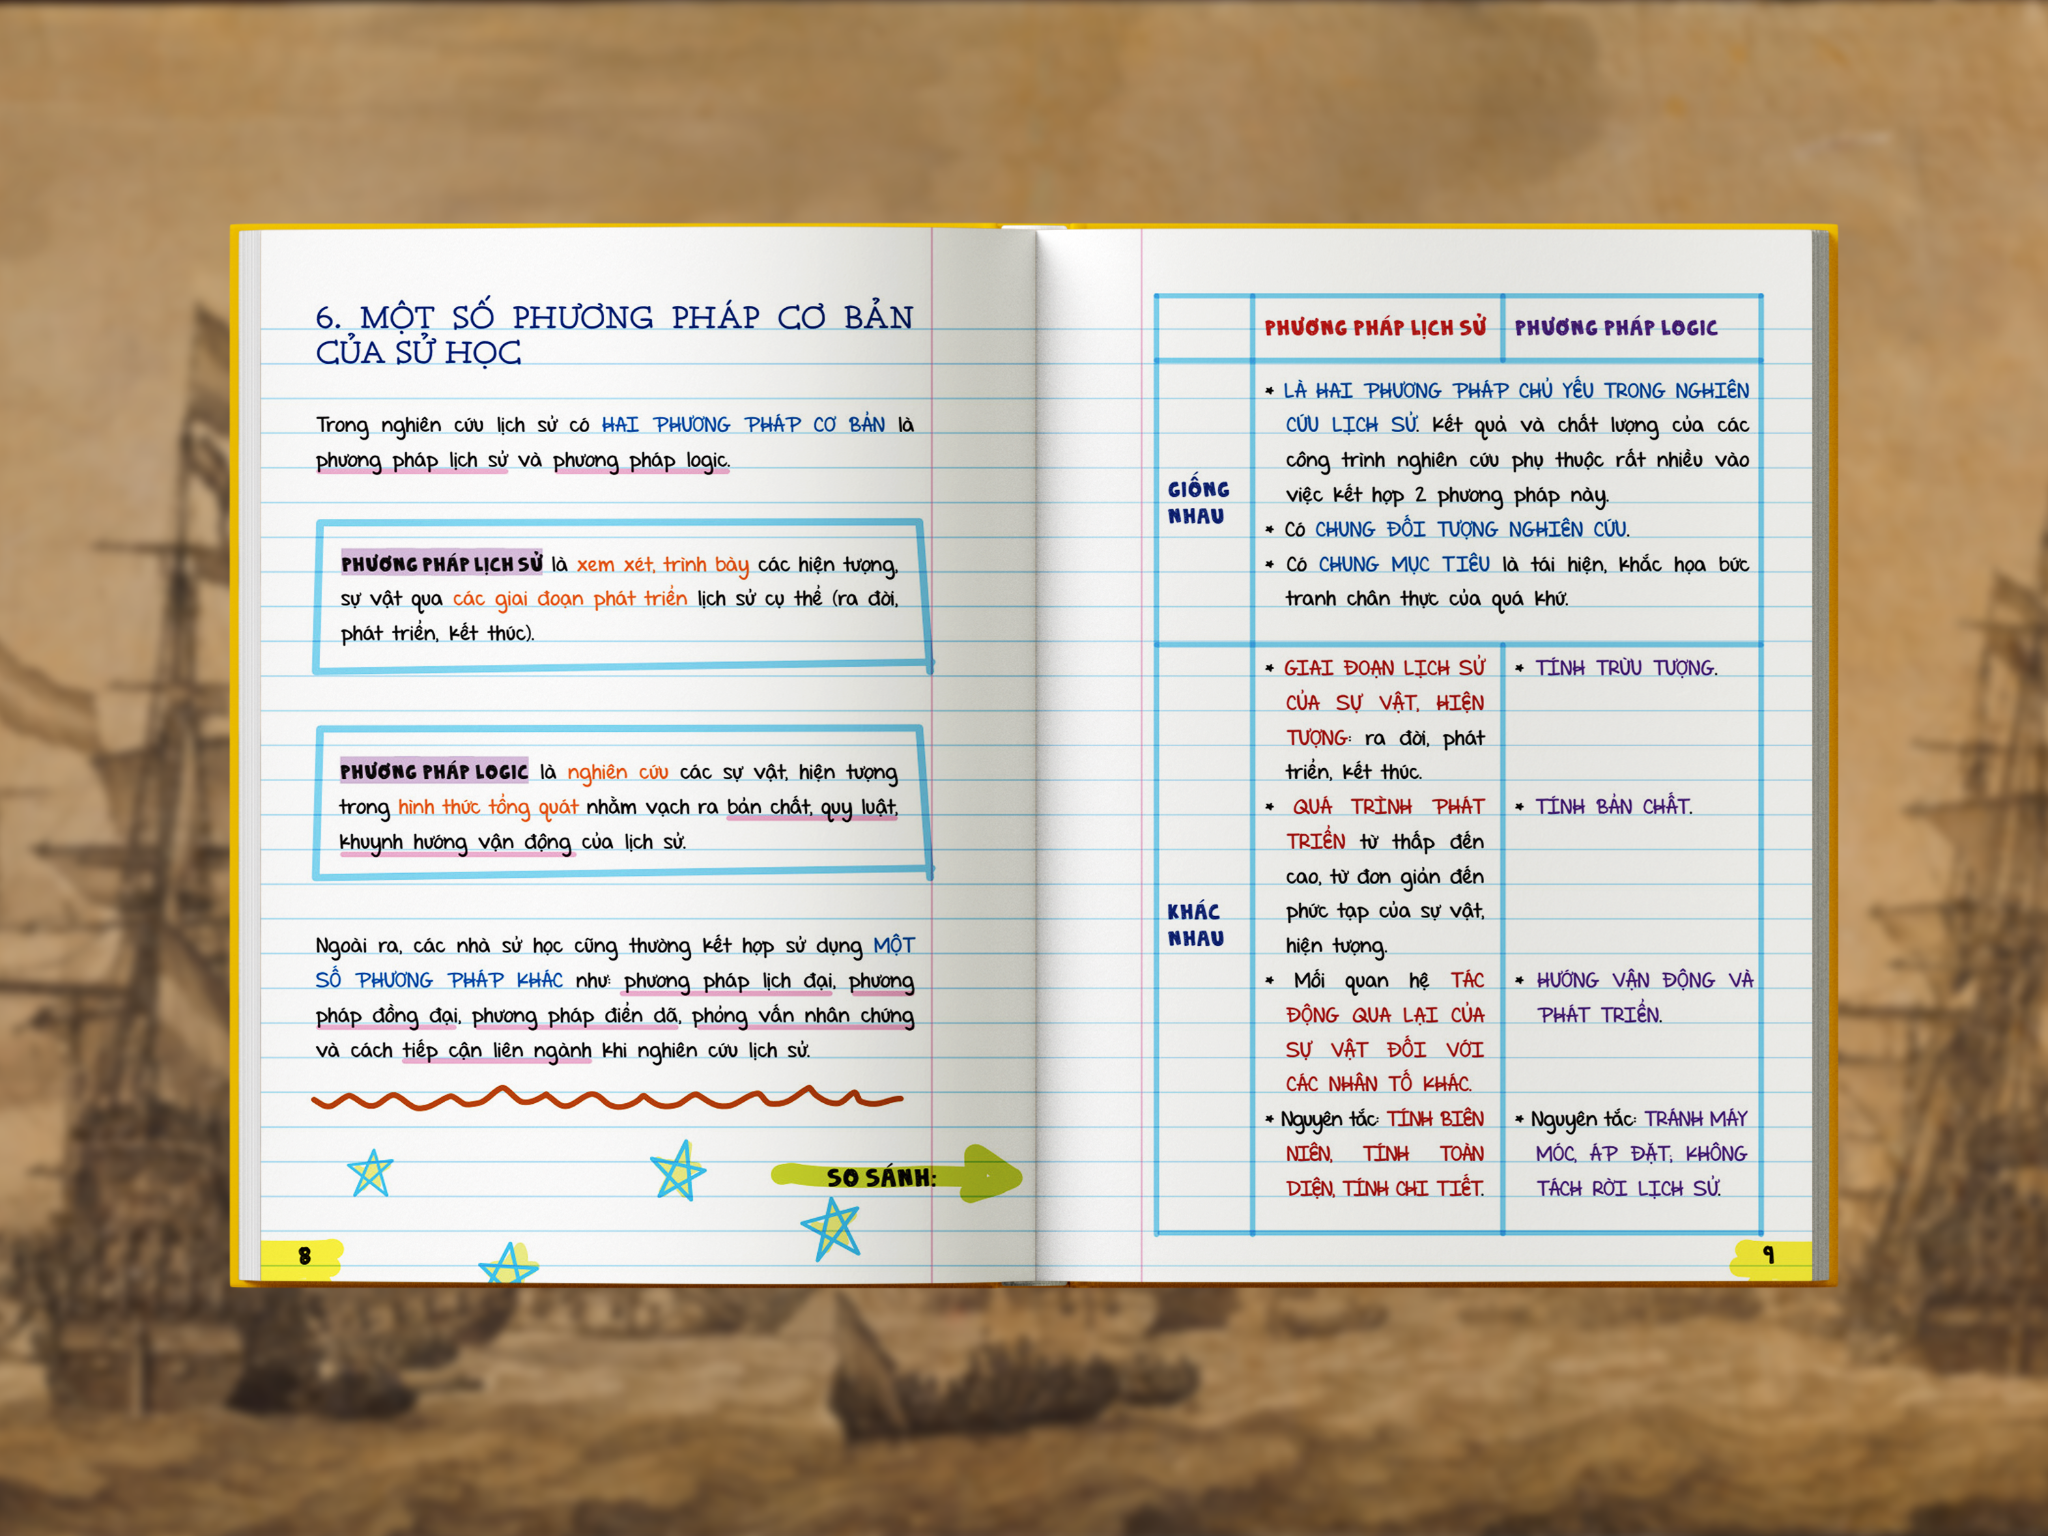 6. MỘT SỐ PHƯƠNG PHÁP CƠ BẢN
CỦA SỬ HỌC
Trong nghiên cứu lịch sử có HAI PHƯƠNG PHÁP CƠ BẢN là
phương pháp lịch sử và phương pháp logic.
PHƯƠNG PHÁP LỊCH SỬ là xem xét, trình bày các hiện tượng,
sự vật qua các giai đoạn phát triển lịch sử cụ thể (ra đời,
phát triển, kết thúc).
PHƯƠNG PHÁP LOGIC là nghiên cứu các sự vật, hiện tượng
trong hình thức tổng quát nhằm vạch ra bản chất, quy luật,
khuynh hướng vận động của lịch sử.
Ngoài ra, các nhà sử học cũng thường kết hợp sử dụng MỘT
SỐ PHƯƠNG PHÁP KHÁC như: phương pháp lịch đại, phương
pháp đồng đại, phương pháp điền dã, phỏng vấn nhân chứng
và cách tiếp cận liên ngành khi nghiên cứu lịch sử.
SO SÁNH:
8
PHƯƠNG PHÁP LỊCH SỬ
PHƯƠNG PHÁP LOGIC
GIỐNG
NHAU
* LÀ HAI PHƯƠNG PHÁP CHỦ YẾU TRONG NGHIÊN
CỨU LỊCH SỬ. Kết quả và chất lượng của các
công trình nghiên cứu phụ thuộc rất nhiều vào
việc kết hợp 2 phương pháp này.
* Có CHUNG ĐỐI TƯỢNG NGHIÊN CỨU.
* Có CHUNG MỤC TIÊU là tái hiện, khắc họa bức
tranh chân thực của quá khứ.
KHÁC
NHAU
* GIAI ĐOẠN LỊCH SỬ
CỦA SỰ VẬT, HIỆN
TƯỢNG: ra đời, phát
triển, kết thúc.
* QUÁ TRÌNH PHÁT
TRIỂN từ thấp đến
cao, từ đơn giản đến
phức tạp của sự vật,
hiện tượng.
* Mối quan hệ TÁC
ĐỘNG QUA LẠI CỦA
SỰ VẬT ĐỐI VỚI
CÁC NHÂN TỐ KHÁC.
* Nguyên tắc: TÍNH BIÊN
NIÊN, TÍNH TOÀN
DIỆN, TÍNH CHI TIẾT.
* TÍNH TRỪU TƯỢNG.
* TÍNH BẢN CHẤT.
* HƯỚNG VẬN ĐỘNG VÀ
PHÁT TRIỂN.
* Nguyên tắc: TRÁNH MÁY
MÓC, ÁP ĐẶT, KHÔNG
TÁCH RỜI LỊCH SỬ.
9